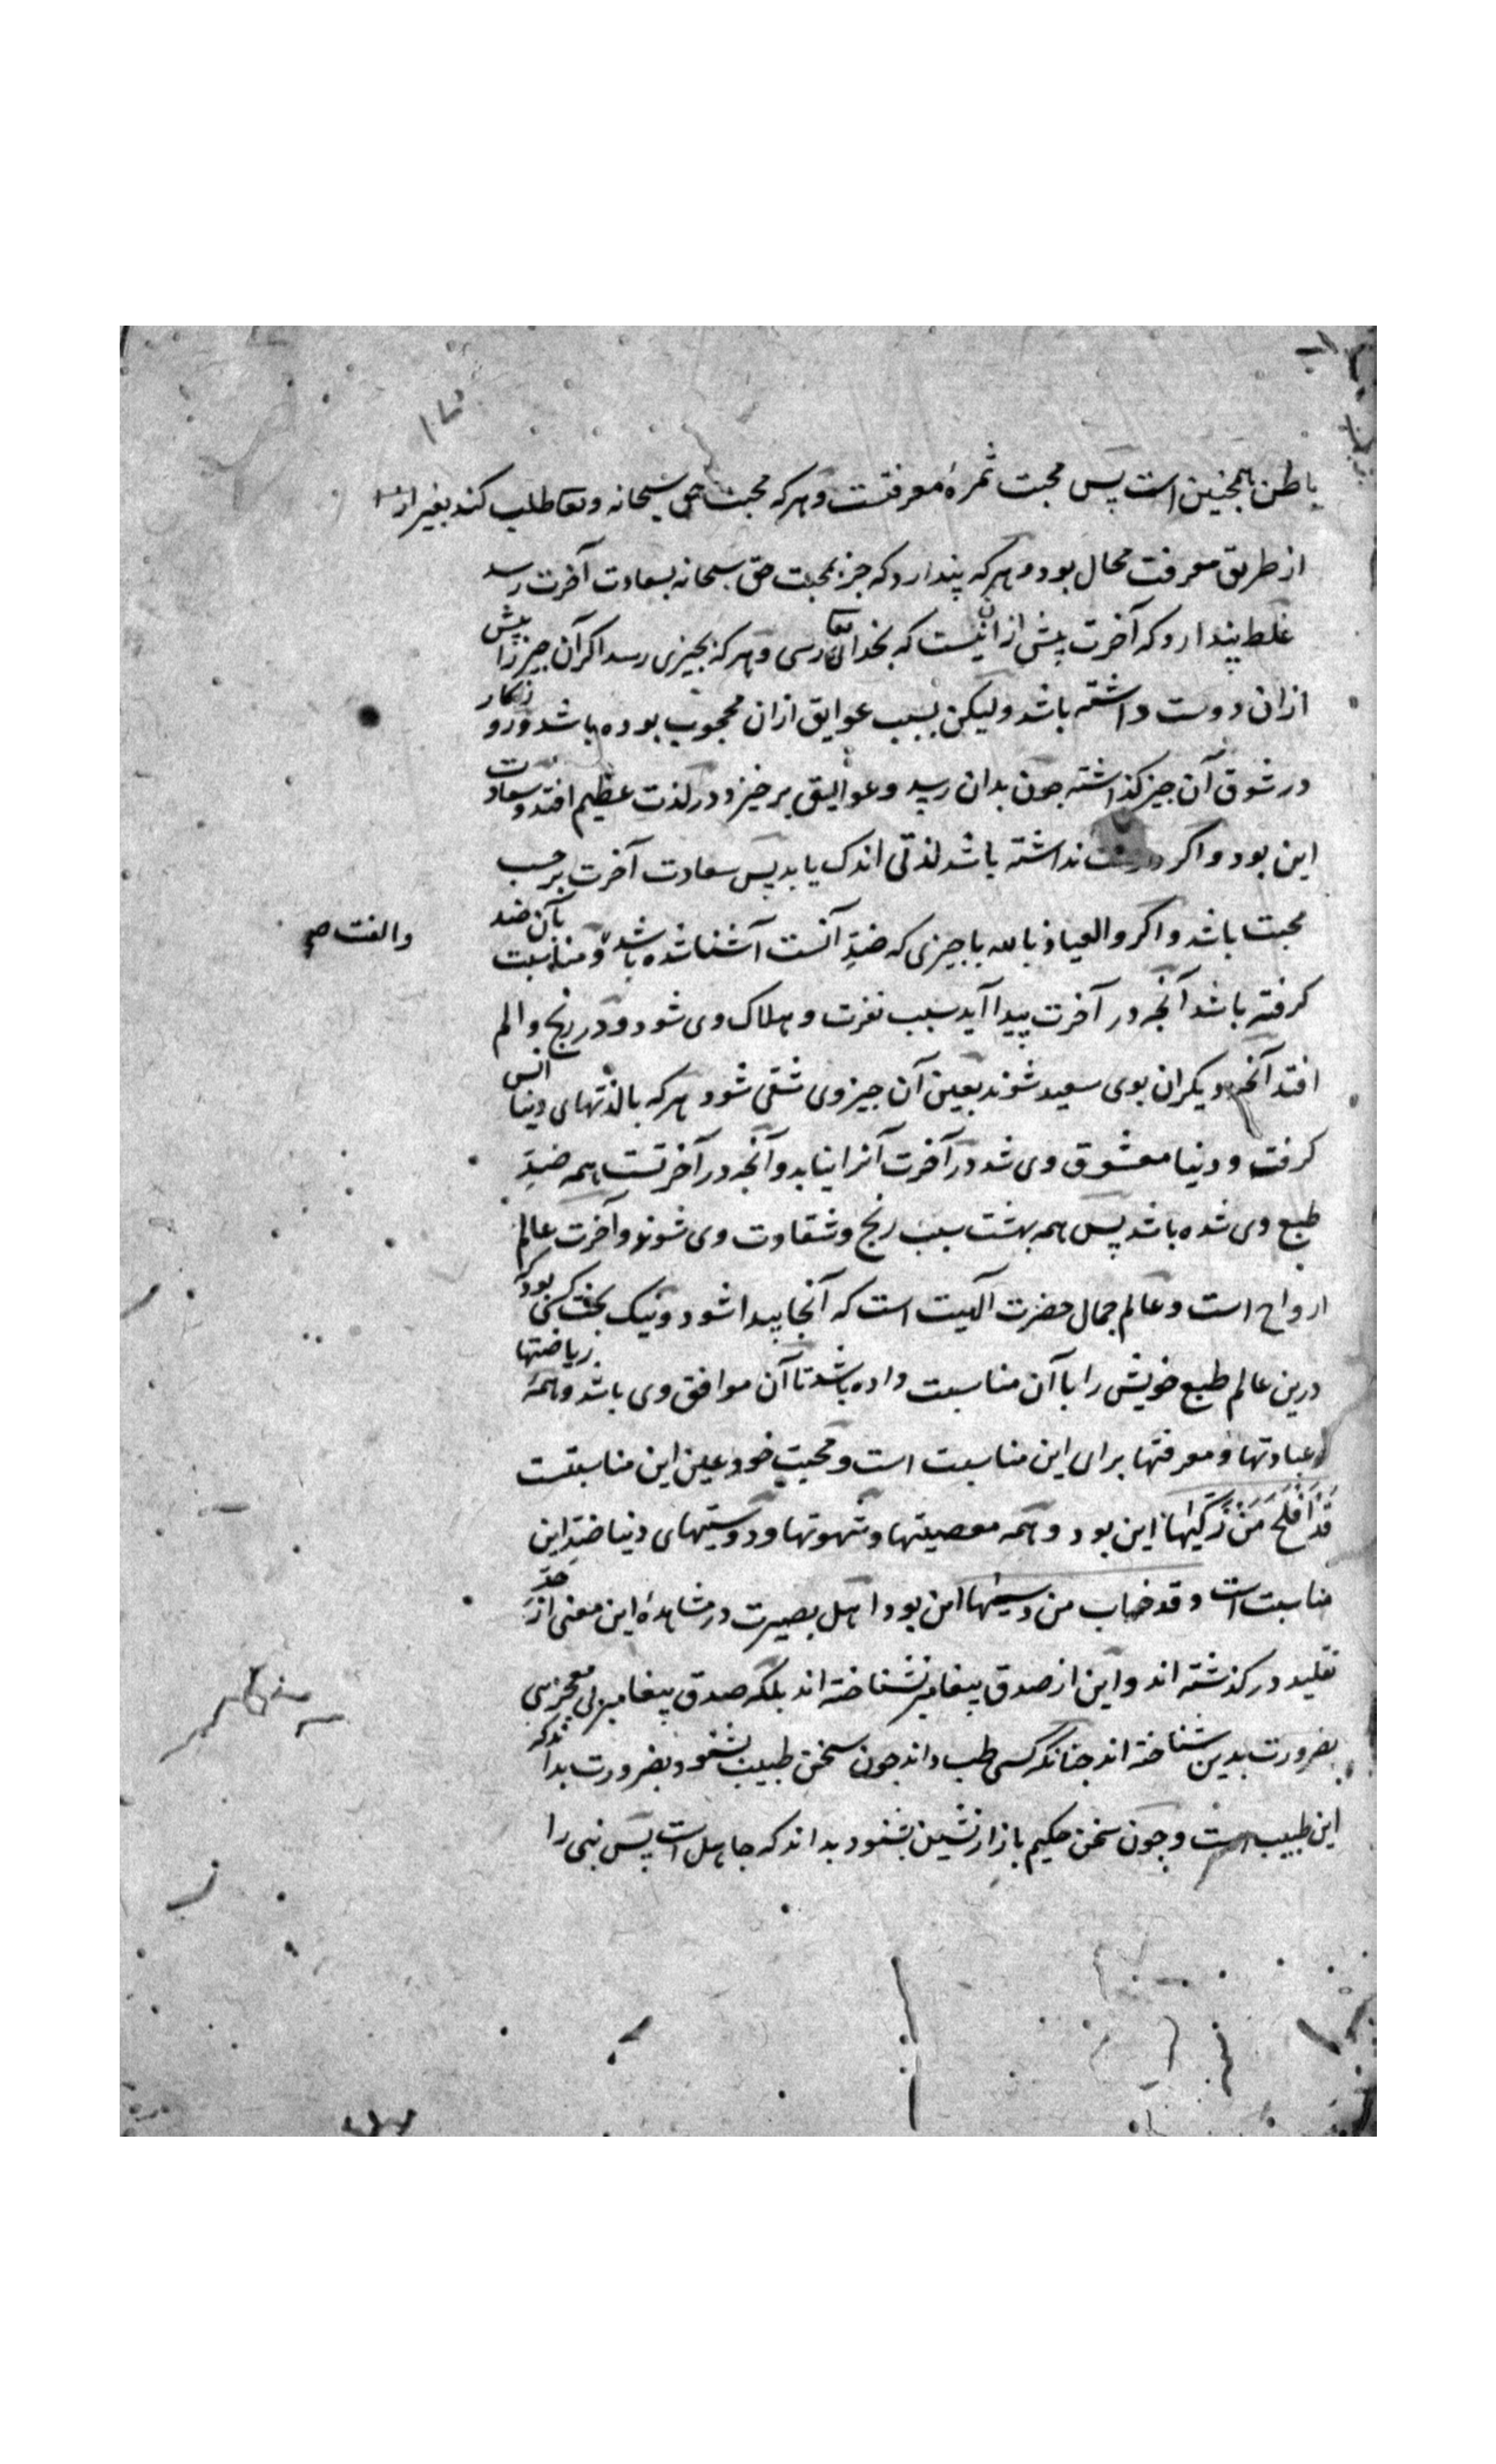 باطن همچنین است پس محبت ثمرهٔ معرفتست و هرکه محبت حق سبحانه و تعا طلب کند بغیر از
از طریق معرفت محال بود و هرکه پندارد که جز بمحبت حق سبحانه بسعادت آخرت رسد
غلط پندارد که آخرت بیش از آن نیست که بخدای تعا رسی و هرکه بچیزی رسد اکر آن چیز را پیش
ازان دوست داشته باشد ولیکن بسبب عوایق ازان محجوب بوده باشد و روزکار
در شوق آن چیز کذاشته چون بدان رسد و عوایق برخیزد در لذت عظیم افتد و سعادت
این بود و اکر دوست نداشته باشد لذتی اندک یابد پس سعادت آخرت بر حسب
محبت باشد و اکر والعیاذ بالله با چیزی که ضدِ آنست آشنا شده باشد و مناسبت بآن ضد
والفت صح
کرفته باشد آنچه در آخرت پیدا آید سبب نفرت و هلاک وی شود و در رنج و الم
افتد آنچه دیکران بوی سعید شوند بعین آن چیز وی شقی شود هرکه با لذتهای دنیا انس
کرفت و دنیا معشوق وی شد در آخرت آنرا نیابد و آنچه در آخرتست همه ضدِ
طبع وی شده باشد پس همه بهشت سبب رنج و شقاوت وی شوند و آخرت عالم
ارواح است و عالم جمال حضرت الهیت است که آنجا پیدا شود و نیک بخت کسی بود که
درین عالم طبع خویش را با آن مناسبت داده باشد تا آن موافق وی باشد و همهٔ ریاضتها
و عبادتها و معرفتها برای این مناسبت است و محبت خود عین این مناسبتست
قَدْ اَفْلَحَ مَنْ زَکّیٰها این بود و همه معصیتها و شهوتها و دوستیهای دنیا ضدِ این
مناسبت است و قد خاب من دسّیٰها این بود اهل بصیرت در مشاهدهٔ این معنی از حدّ
تقلید در کذشته اند و این از صدق پیغامبر نشناخته اند بلکه صدق پیغامبر بی معجزهٔ
بضرورت بدین شناخته اند چنانکه کسی طب داند چون سخن طبیب بشنود بضرورت بداند که
این طبیب است و چون سخن حکیم بازارنشین بشنود بداند که جاهل است پس نبی را